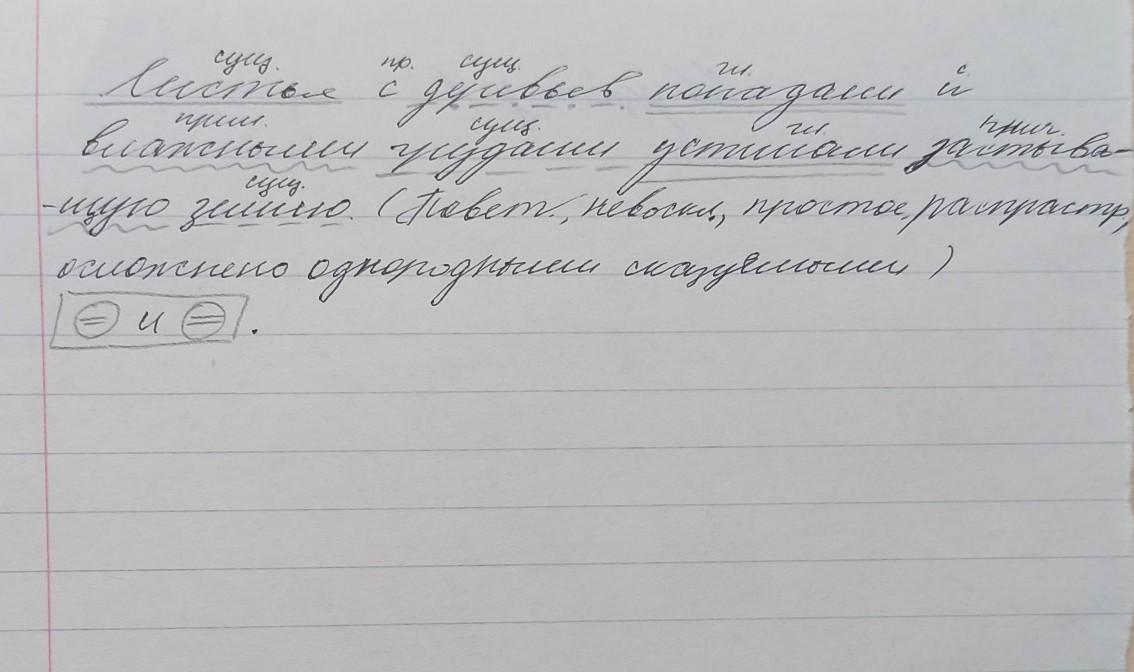 сущ. пр. сущ. гл. с.
Листья с деревьев попадали и
прил. сущ. гл. прич.
влажными грудами устилали застыва-
сущ.
-ющую землю. (Повест., невоскл., простое, распрастр,
осложнено однородными сказуемыми)
= и = .